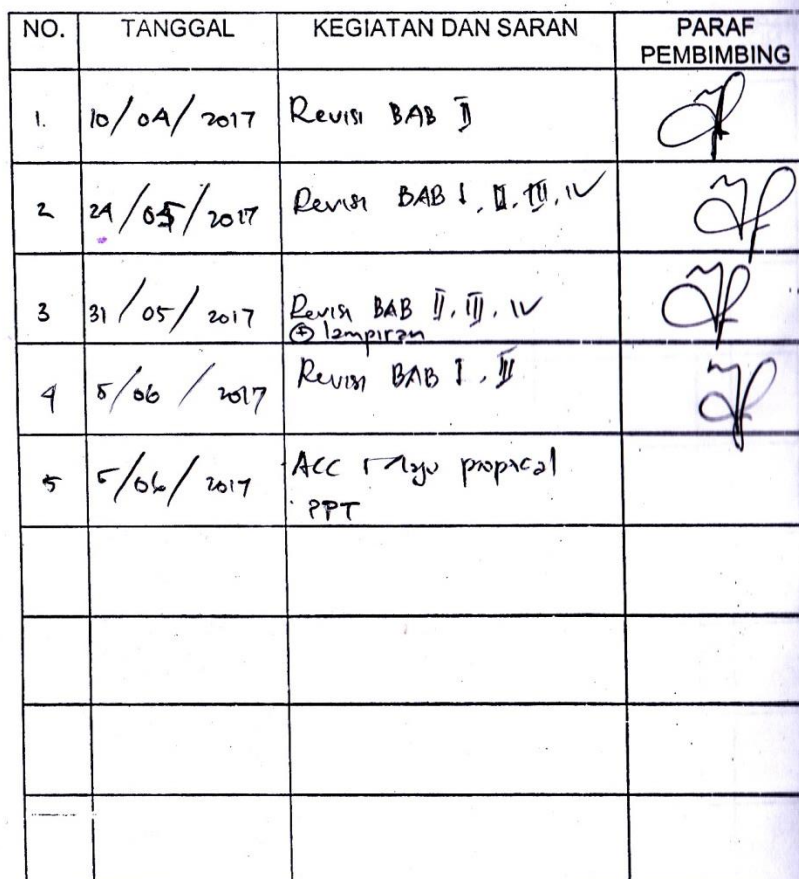 NO. TANGGAL KEGIATAN DAN SARAN PARAF PEMBIMBING
1. 10/04/2017 Revisi BAB II
2 24/05/2017 Revisi BAB I, II, III, IV
3 31/05/2017 Revisi BAB II, III, IV
⊕ lampiran
4 5/06/2017 Revisi BAB I, III
5 5/06/2017 ACC maju proposal
PPT